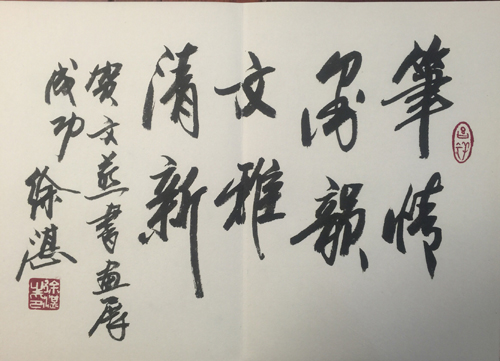 筆情
墨韻
文雅
清新
賀文燕書畫展
成功
徐湛